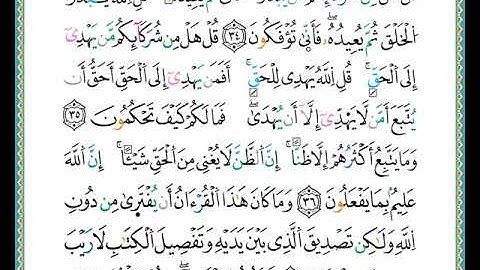 ٱلْخَلْقَ ثُمَّ يُعِيدُهُۥۖ فَأَنَّىٰ تُؤْفَكُونَ ٣٤ قُلْ هَلْ مِن شُرَكَآئِكُم مَّن يَهْدِىٓ
إِلَى ٱلْحَقِّۚ قُلِ ٱللَّهُ يَهْدِى لِلْحَقِّۗ أَفَمَن يَهْدِىٓ إِلَى ٱلْحَقِّ أَحَقُّ أَن
يُتَّبَعَ أَمَّن لَّا يَهِدِّىٓ إِلَّآ أَن يُهْدَىٰۖ فَمَا لَكُمْ كَيْفَ تَحْكُمُونَ ٣٥
وَمَا يَتَّبِعُ أَكْثَرُهُمْ إِلَّا ظَنًّاۚ إِنَّ ٱلظَّنَّ لَا يُغْنِى مِنَ ٱلْحَقِّ شَيْـًٔاۚ إِنَّ ٱللَّهَ
عَلِيمٌۢ بِمَا يَفْعَلُونَ ٣٦ وَمَا كَانَ هَٰذَا ٱلْقُرْءَانُ أَن يُفْتَرَىٰ مِن دُونِ
ٱللَّهِ وَلَٰكِن تَصْدِيقَ ٱلَّذِى بَيْنَ يَدَيْهِ وَتَفْصِيلَ ٱلْكِتَٰبِ لَا رَيْبَ